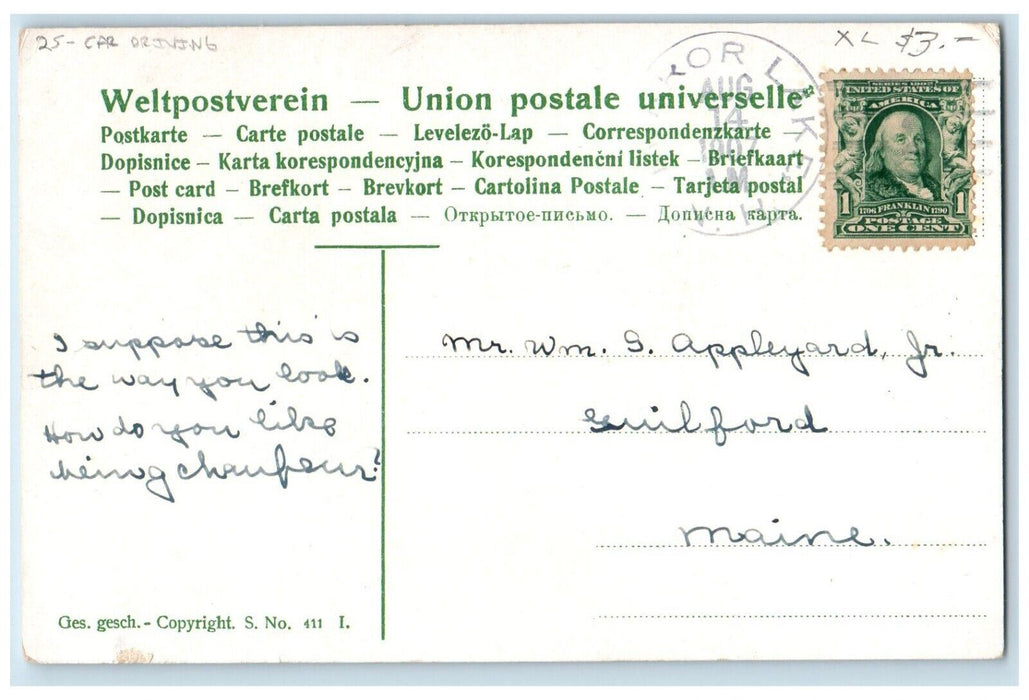 25- CAR DRIVING
XL $3.-
OR LAKE,
AUG
14
1907
AM
N.H.
UNITED STATES OF
AMERICA
1 1706 FRANKLIN 1790 1
POSTAGE
ONE CENT
Weltpostverein — Union postale universelle
Postkarte — Carte postale — Levelező-Lap — Correspondenzkarte —
Dopisnice – Karta korespondencyjna – Korespondenční listek – Briefkaart
— Post card – Brefkort – Brevkort – Cartolina Postale – Tarjeta postal
— Dopisnica — Carta postala — Открытое-письмо. — Дописна карта.
I suppose this is
the way you look.
How do you like
being chaufeur?
Mr. Wm. S. Appleyard, Jr.
Guilford
Maine.
Ges. gesch. - Copyright. S. No. 411 I.